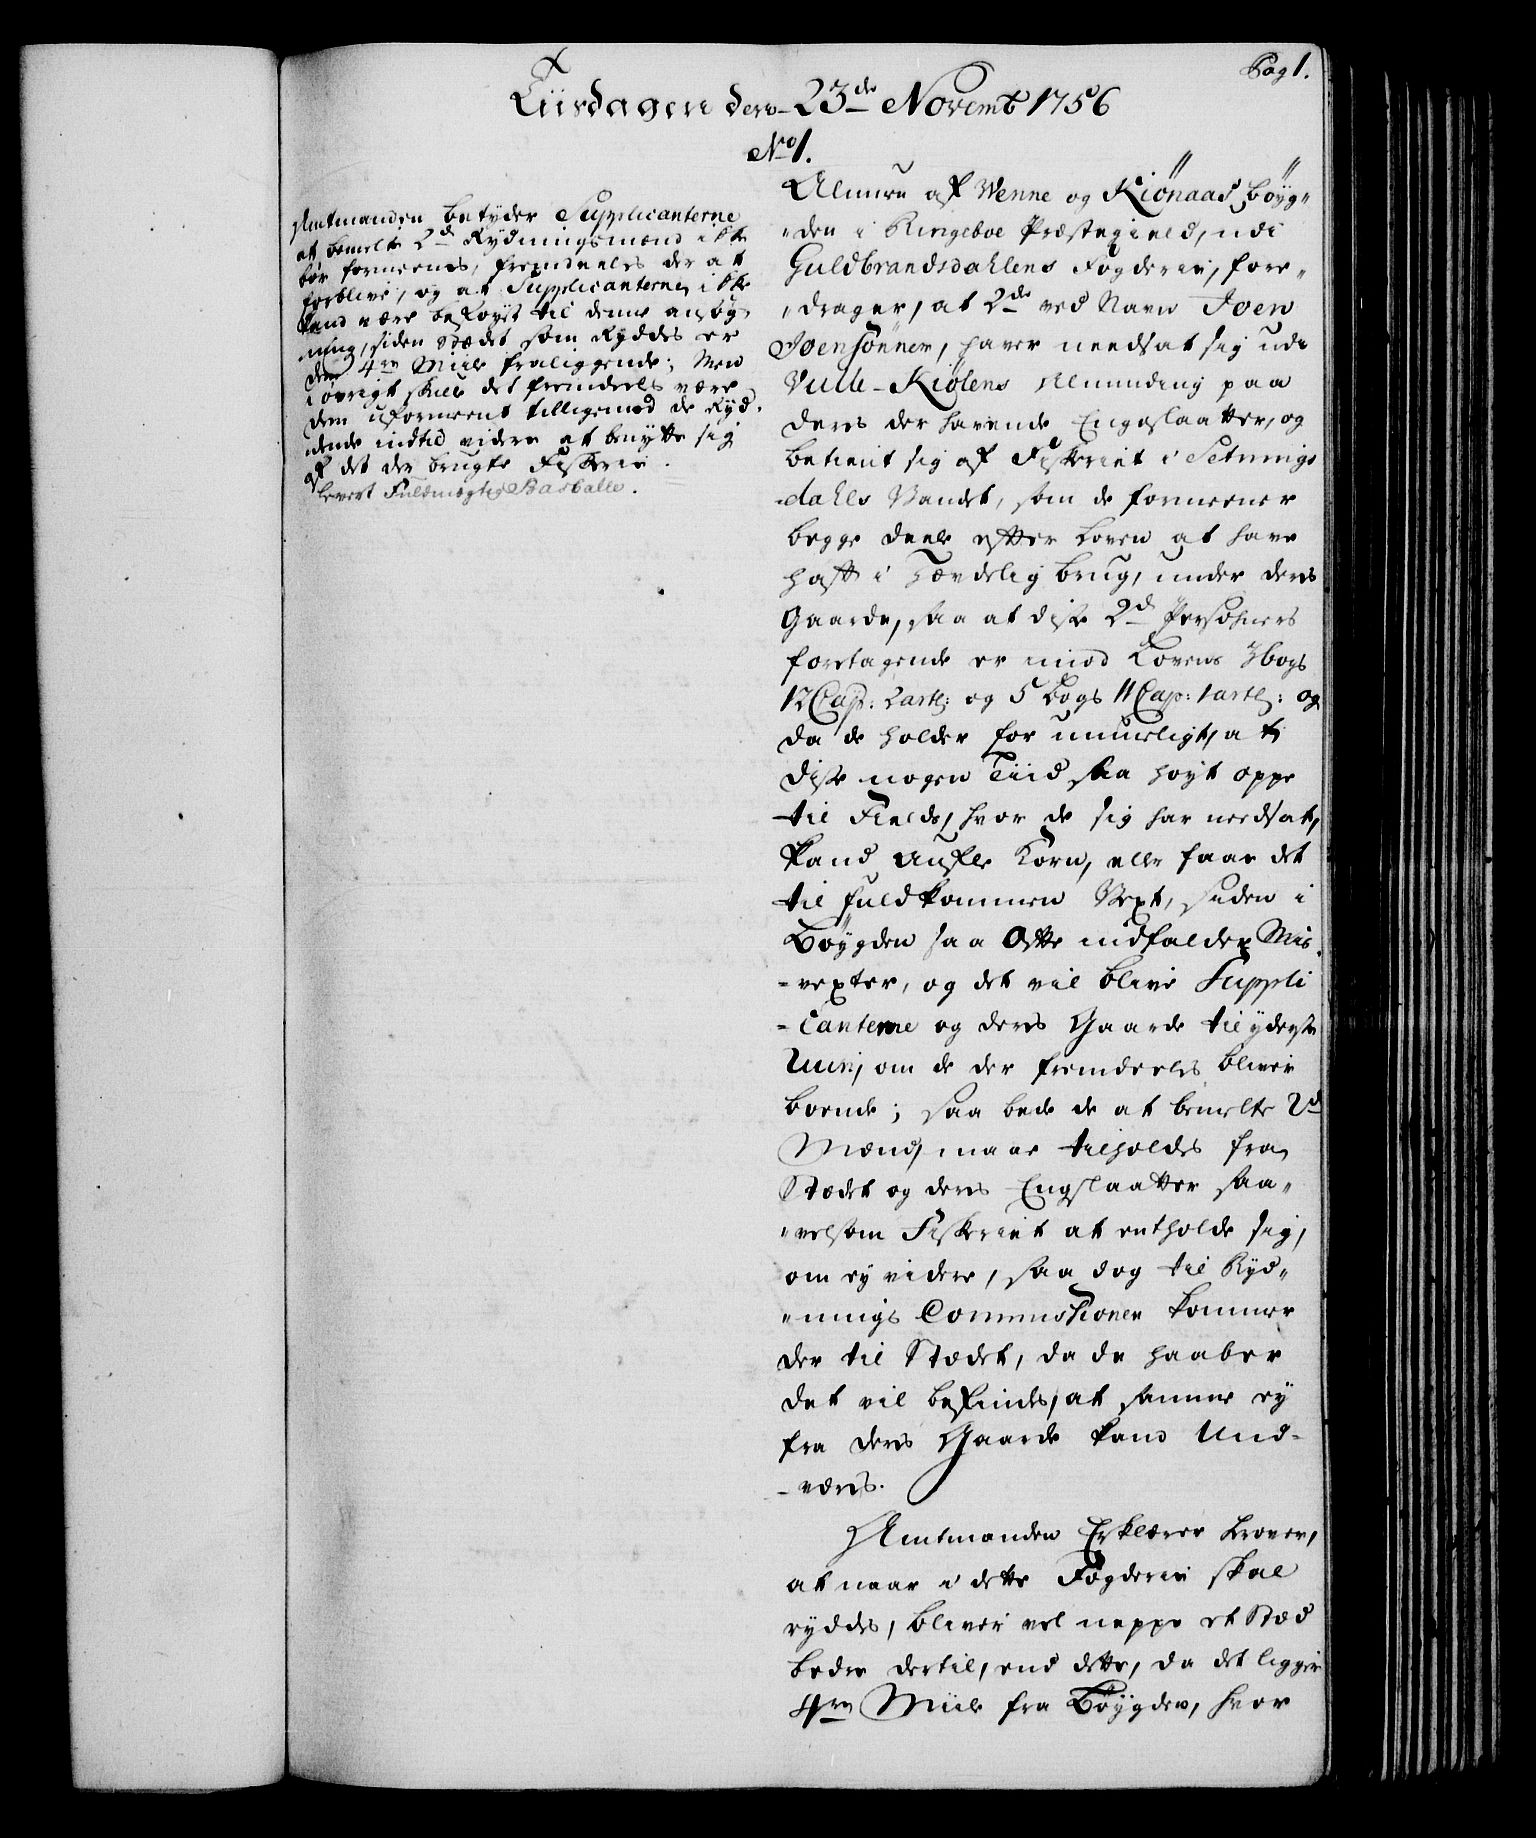 Pag 1.
Tiisdagen den 23de Novembr 1756
No 1.
Amtmanden betyder Supplicanterne
at bemelte 2de Rydningsmænd ikke
bør formeenes, fremdeeles der at
forblive, og at Supplicanterne ikke
kand være beføyet til denne ansøg-
ning, siden Stædet som Ryddes er
dem 4re Miile fraliggende; Men
i øvrigt skule det fremdeeles være
dem uformeent tilligemed de Ryd-
dende indtil videre at benytte sig
af det der brugte Fiskerie.
levert Fuldmægtig Basballe.
Almuen af Wenne og Kiönaas böyg-
-den i Ringeboe Præstegield, udi
Guldbrandsdahlens Fogderie, fore-
-drager, at 2de ved Navn Joen
Joensönner, haver needsat sig udi
Vulle-Kiölens Almunding paa
deres der havende Engeslaatter, og
betient sig af Fiskeriet i Setnings
-dahls Vandet, som de formeener
begge deele efter Loven at have
haft i hævdelig brug, under deres
Gaarde, saa at disse 2de Persohners
foretagende er imod Lovens 3 bogs
12 Cap: 2 artl: og 5 Bogs 11 Cap: 1 artl: og
da de holder for umueligt, at
disse nogen Tiid saa høyt oppe
til Fields, hvor de sig har needsat,
kand aufle Korn, elle faae det
til fuldkommen Vext, siden i
Böygden saa Ofte indfalder Mis-
-vexter, og det vil blive Suppli
-canterne og deres Gaarde til yderste
Ruin, om de der fremdeeles bliver
boende; saa bede de at bemelte 2de
Mænd, maae tilholdes fra
Stædet og deres Engslaatter saa-
-velsom Fiskeriet at entholde sig,
om ey videre, saa dog til Ryd-
-nings Commissionen kommer
der til Stædet, da de haaber
det vil befindes, at samme ey
fra deres Gaarde kand Und-
-værs.
Amtmanden Erklærer herover,
at naar i dette Fogderie skal
ryddes, bliver vel neppe et Stæd
bedre dertil, end dette, da det ligger
4re Miile fra Böygden, hvor